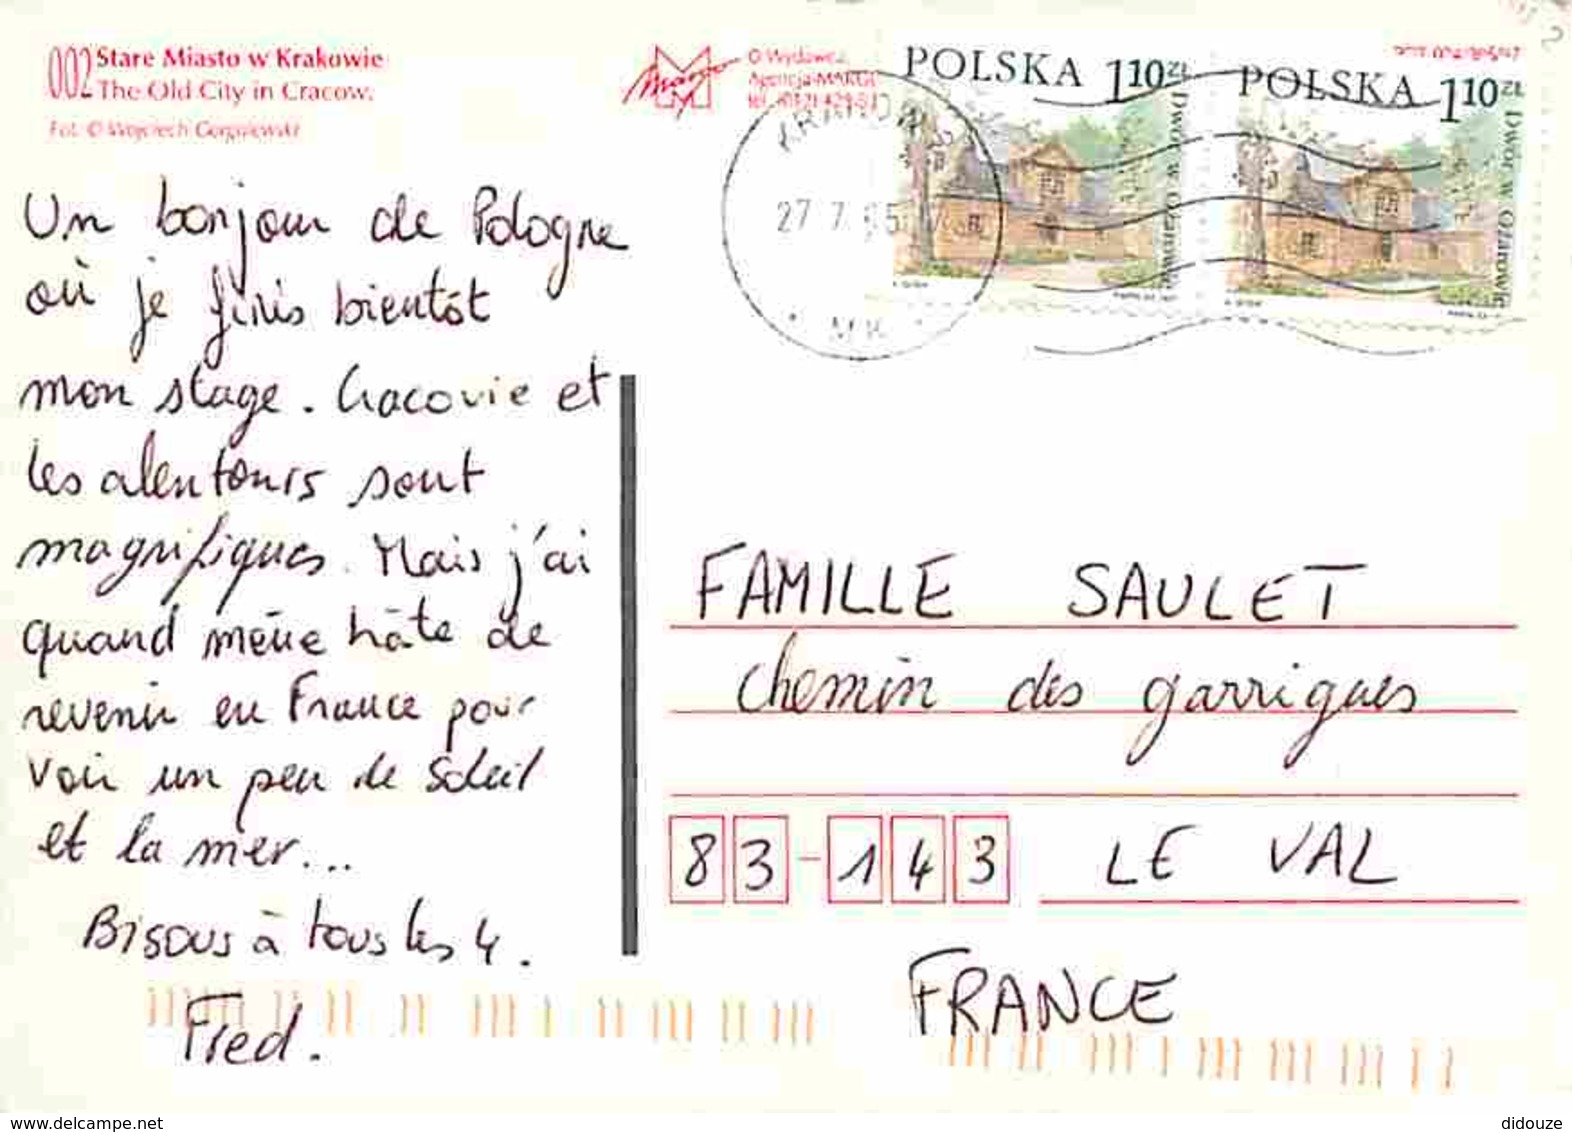 002 Stare Miasto w Krakowie
The Old City in Cracow.
Fot. © Wojciech Gorgolewski
© Wydawca
POLSKA 110 ZŁ
Dwór w Ożarowie
POLSKA 110 ZŁ
Dwór w Ożarowie
27. 7. 05
Un bonjour de Pologne
où je finis bientôt
mon stage. Cracovie et
les alentours sont
magnifiques. Mais j'ai
quand même hâte de
revenir en France pour
voir un peu de soleil
et la mer...
Bisous à tous les 4.
Fred.
FAMILLE SAULET
chemin des garrigues
83-143 LE VAL
FRANCE
www.delcampe.net
didouze